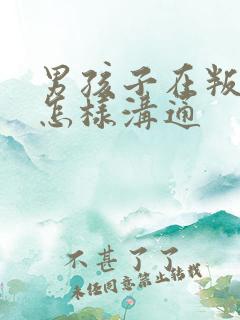 男孩子在叛
怎樣溝通
不甚了了
未经同意禁止转载